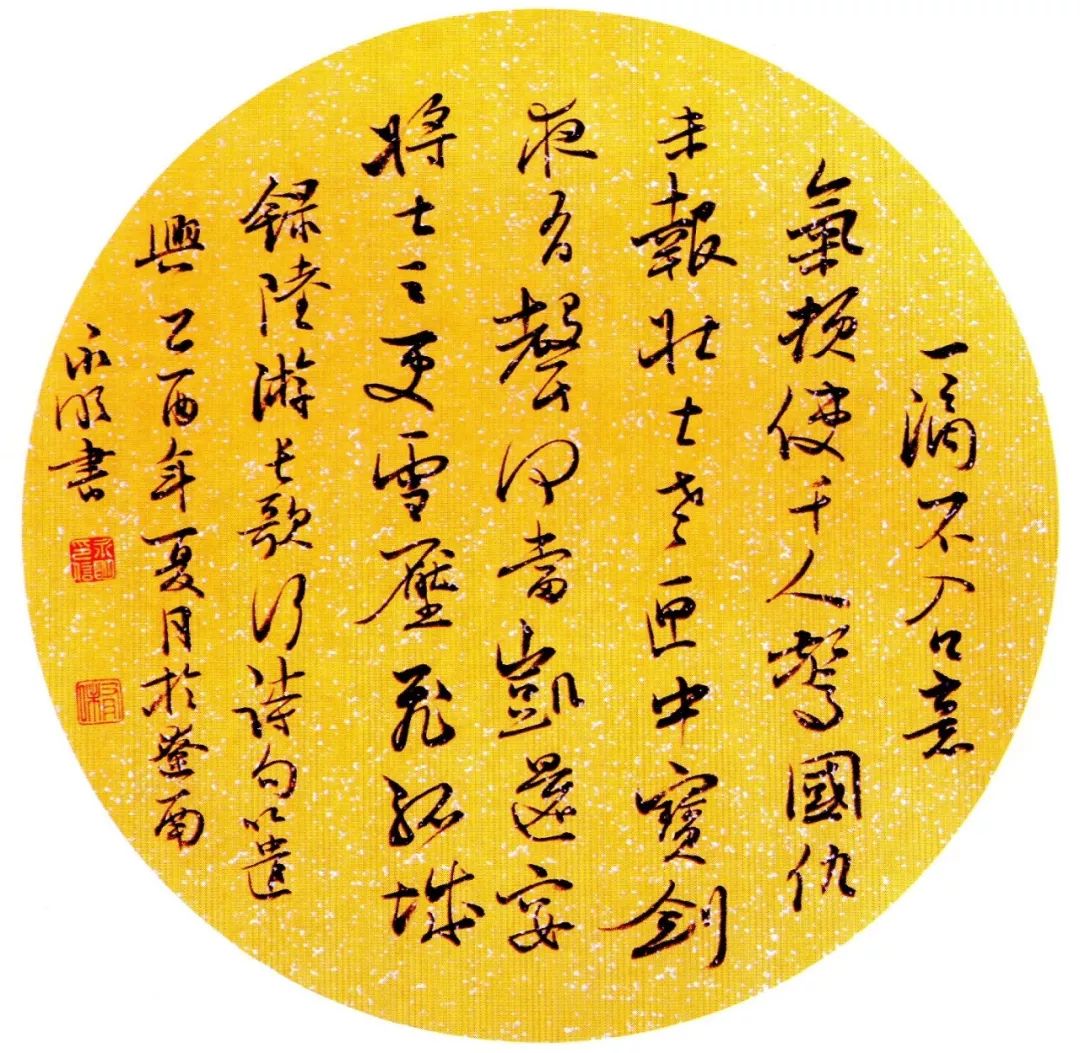 一滴不入口意
氣頓使千人驚國仇
未報壯士老匣中寶劍
夜有聲何當凱還宴
將士三更雪壓飛狐城
錄陸游長歌行詩句以遣
興乙酉年夏月於
永順書